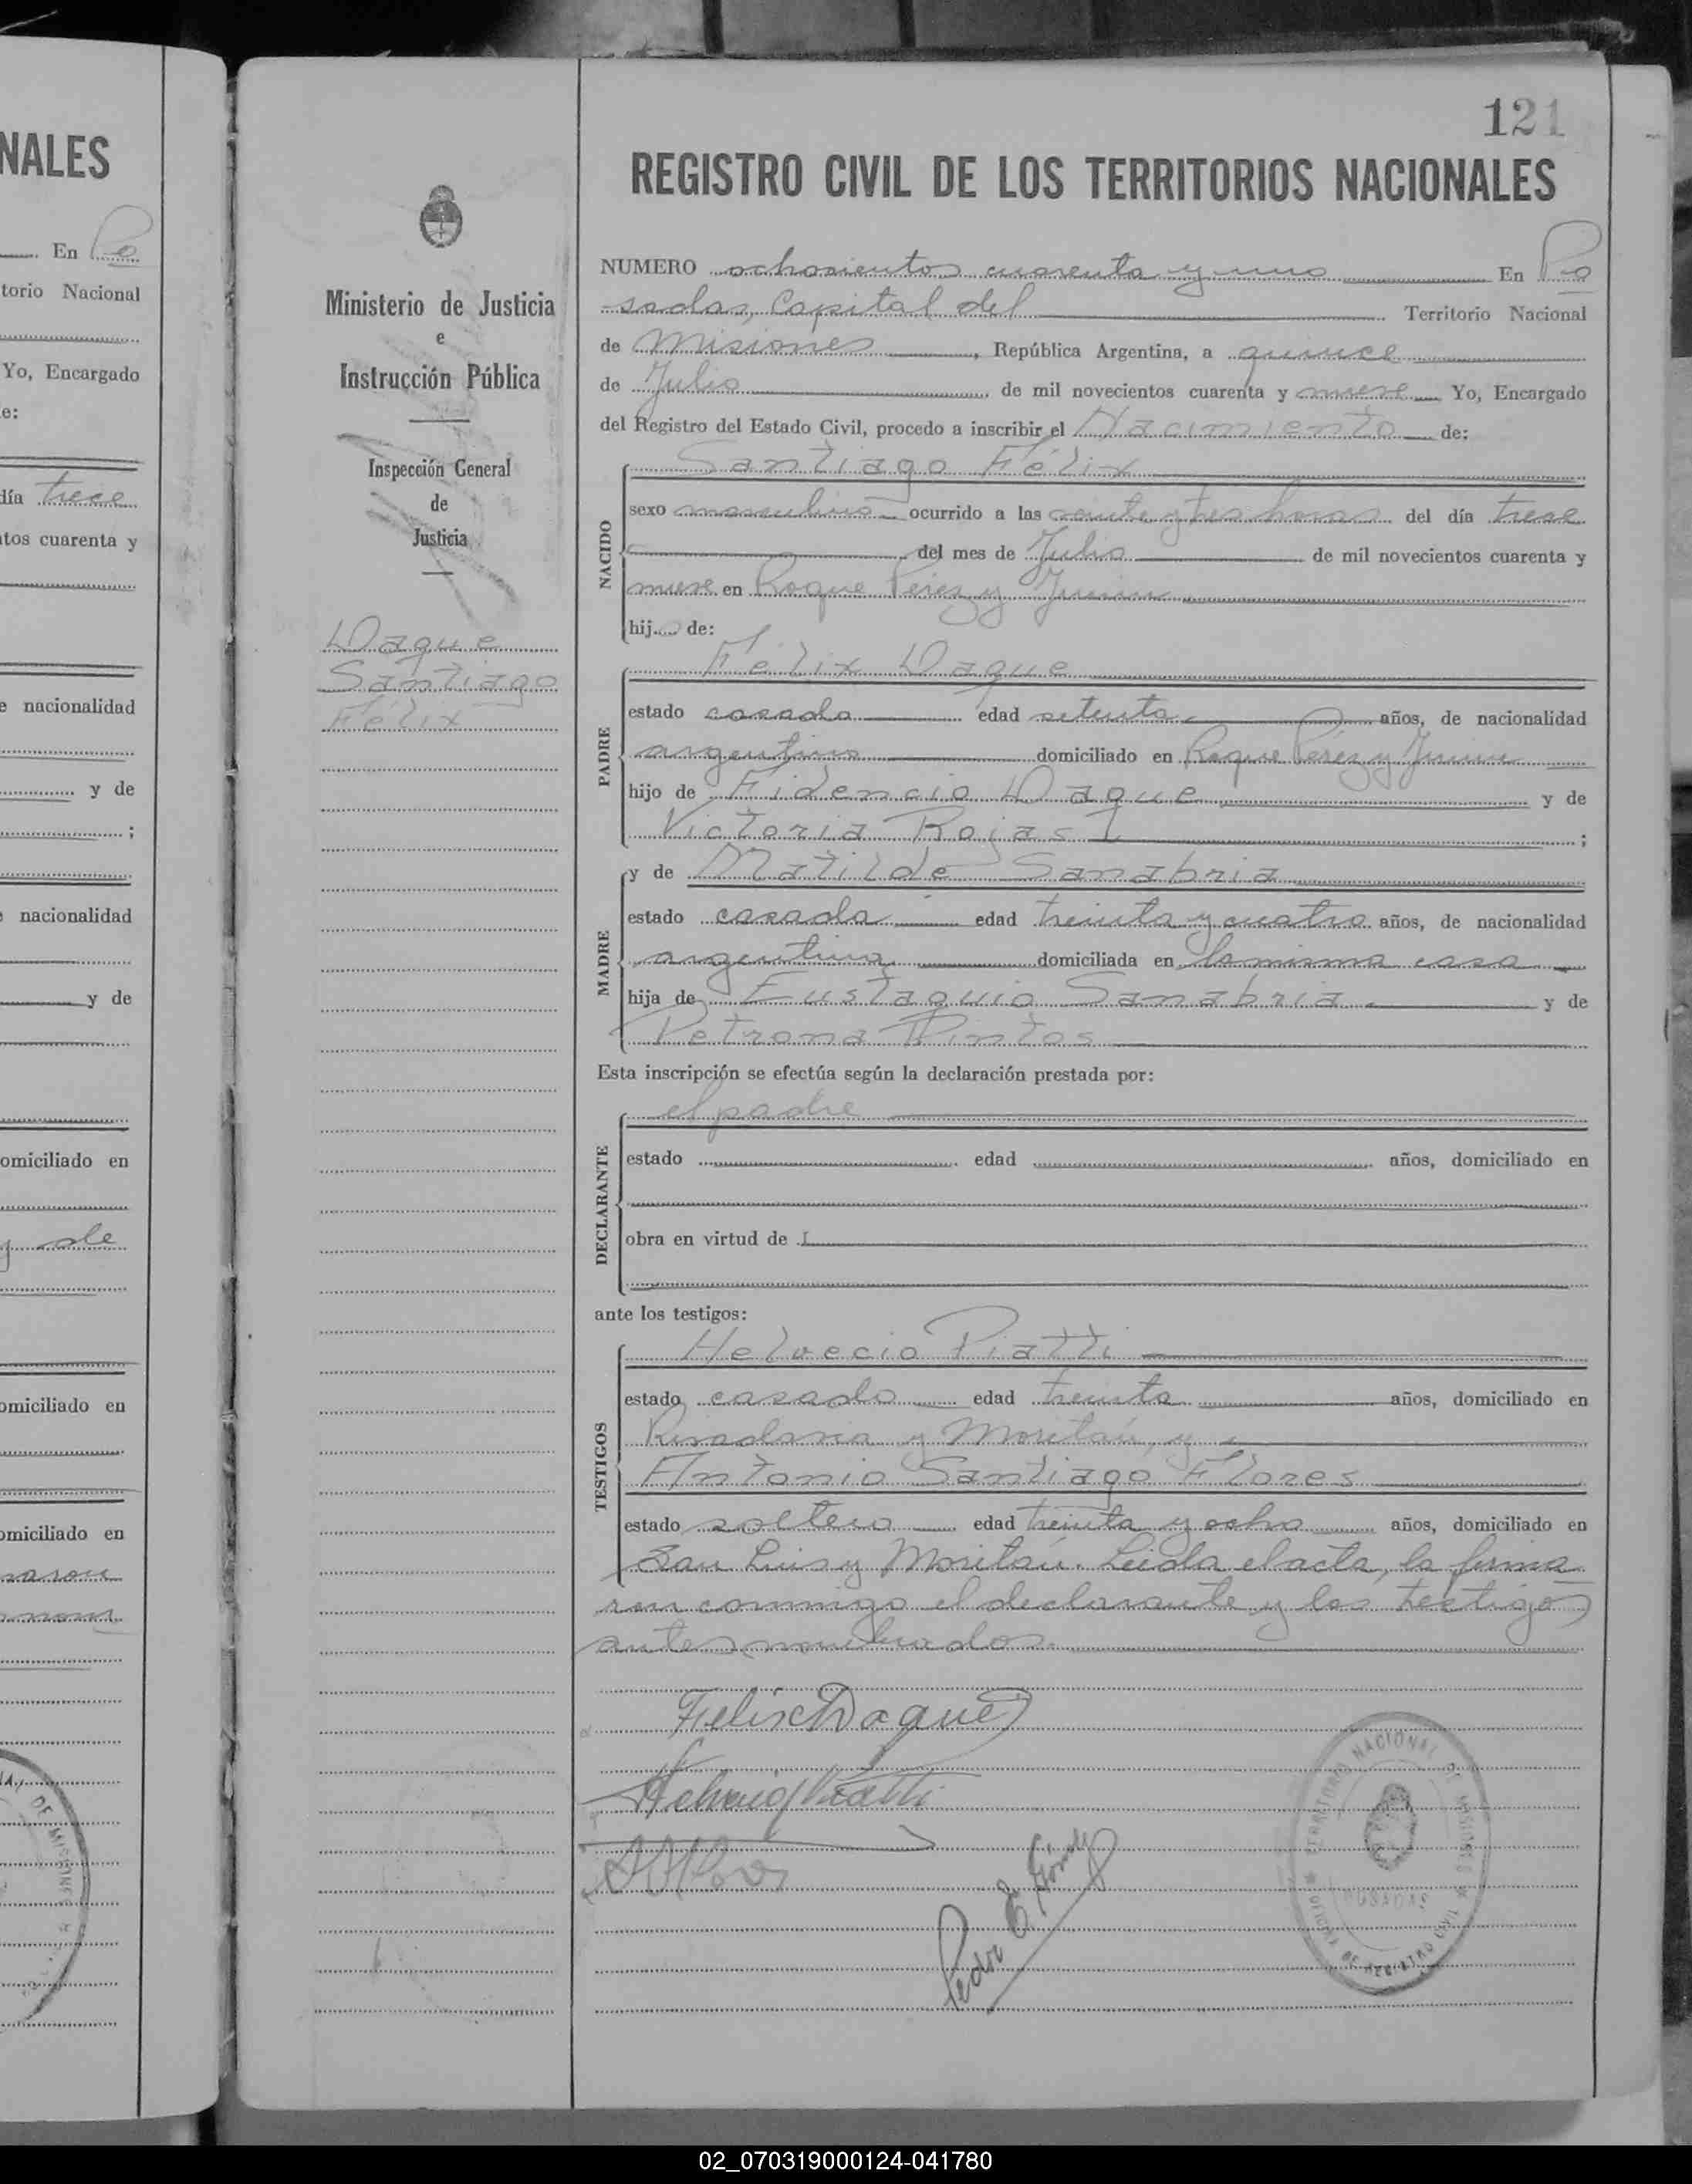 NALES
En Po
torio Nacional
Yo, Encargado
e:
día trece
tos cuarenta y
e nacionalidad
y de
;
e nacionalidad
y de
omiciliado en
y de
omiciliado en
omiciliado en
121
REGISTRO CIVIL DE LOS TERRITORIOS NACIONALES
Ministerio de Justicia
e
Instrucción Pública
Inspección General
de
Justicia
Daque
Santiago
Félix
NUMERO ochocientos cuarenta y uno En Po
sadas, Capital del Territorio Nacional
de Misiones, República Argentina, a quince
de Julio de mil novecientos cuarenta y nueve Yo, Encargado
del Registro del Estado Civil, procedo a inscribir el Nacimiento de:
NACIDO
Santiago Félix
sexo masculino ocurrido a las veinte y tres horas del día trece
del mes de Julio de mil novecientos cuarenta y
nueve en Roque Pérez y Junin
hijo de:
PADRE
Félix Daque
estado casado edad setenta años, de nacionalidad
argentino domiciliado en Roque Pérez y Junin
hijo de Fidencio Daque y de
Victoria Rojas ;
MADRE
y de Matilde Sanabria
estado casada edad treinta y cuatro años, de nacionalidad
argentina domiciliada en la misma casa
hija de Eustaquio Sanabria y de
Petrona Pintos
Esta inscripción se efectúa según la declaración prestada por:
DECLARANTE
el padre
estado edad años, domiciliado en
obra en virtud de
ante los testigos:
TESTIGOS
Helvecio Piatti
estado casado edad treinta años, domiciliado en
Rivadavia y Moritán, y
Antonio Santiago Flores
estado soltero edad treinta y ocho años, domiciliado en
San Luis y Moritán. Leida el acta, la firma
ron conmigo el declarante y los testigos
antes nombrados.
Felix Daque
Helvecio Piatti
Pedro E. Gómez
TERRITORIO NACIONAL DE MISIONES
POSADAS
OFICINA DE REGISTRO CIVIL
02_070319000124-041780